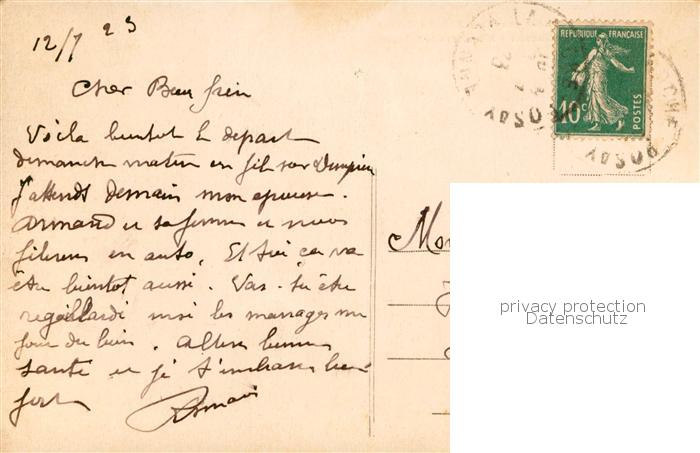 12/7 23
Cher Beau frère
Voila bientot le depart
dimanche matin on file sur
J'attends demain mon epouse.
Armand et sa femme et nous
filerons en auto. Et toi ça va
être bientot aussi. Vas-tu être
regaillardi
. Allons bonne
santé et je t'embrasse bien
fort
REPUBLIQUE FRANÇAISE
10c
POSTES
Mon
privacy protection
Datenschutz